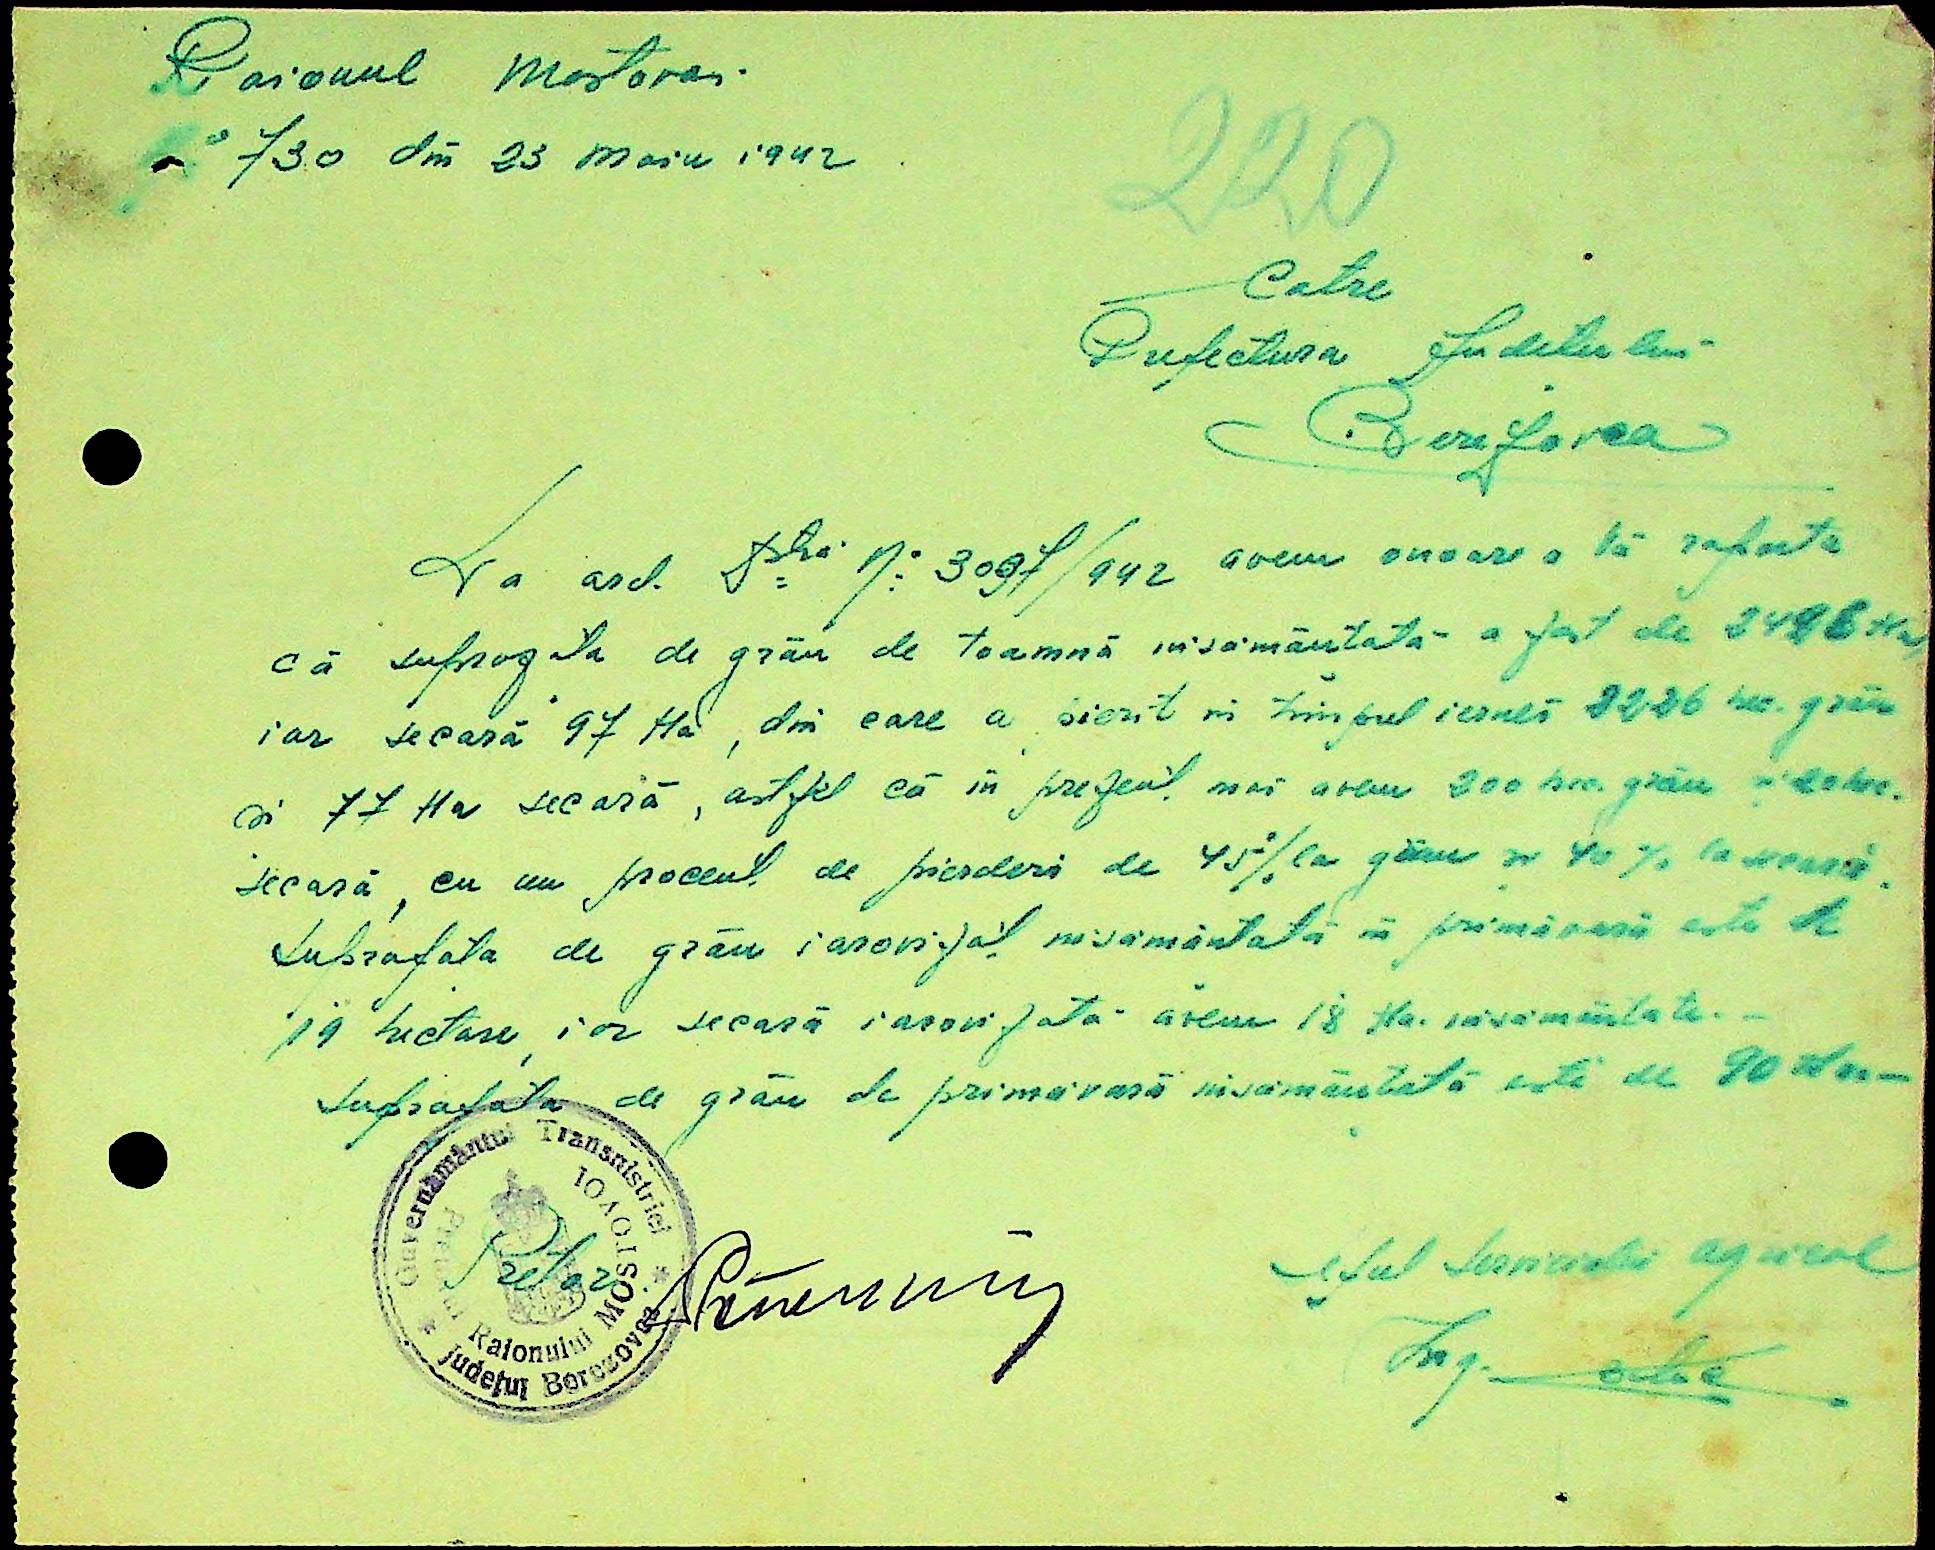 Raionul Mostovoi.
No 730 din 23 Maiu 1942
220
Catre
Prefectura Judetului
Berezovca
La ord. Dstră No. 3097/942 avem onoare a vă raporta
că suprafata de grâu de toamnă însământată a fost de Ha,
iar secară 97 Ha, din care a pierit in timpul iernei 2226 hec. grâu
si 77 Ha secară, astfel că in prezent mai avem 200 hec. grâu si 20 hec.
secară, cu un procent de pierderi de 45% la grâu si 40% la secară.
Suprafata de grâu iarovizat insământată in primăvară este de
19 hectare, iar secară iarovizată avem 18 Ha. insământate. -
Suprafata de grâu de primăvară insământată este de 90 Ha -
Guvernământul Transnistriei
Pretura Raionului MOSTOVOI
Judeţul Berezovca
Pretor
Seful Serviciului agricol
Ing.